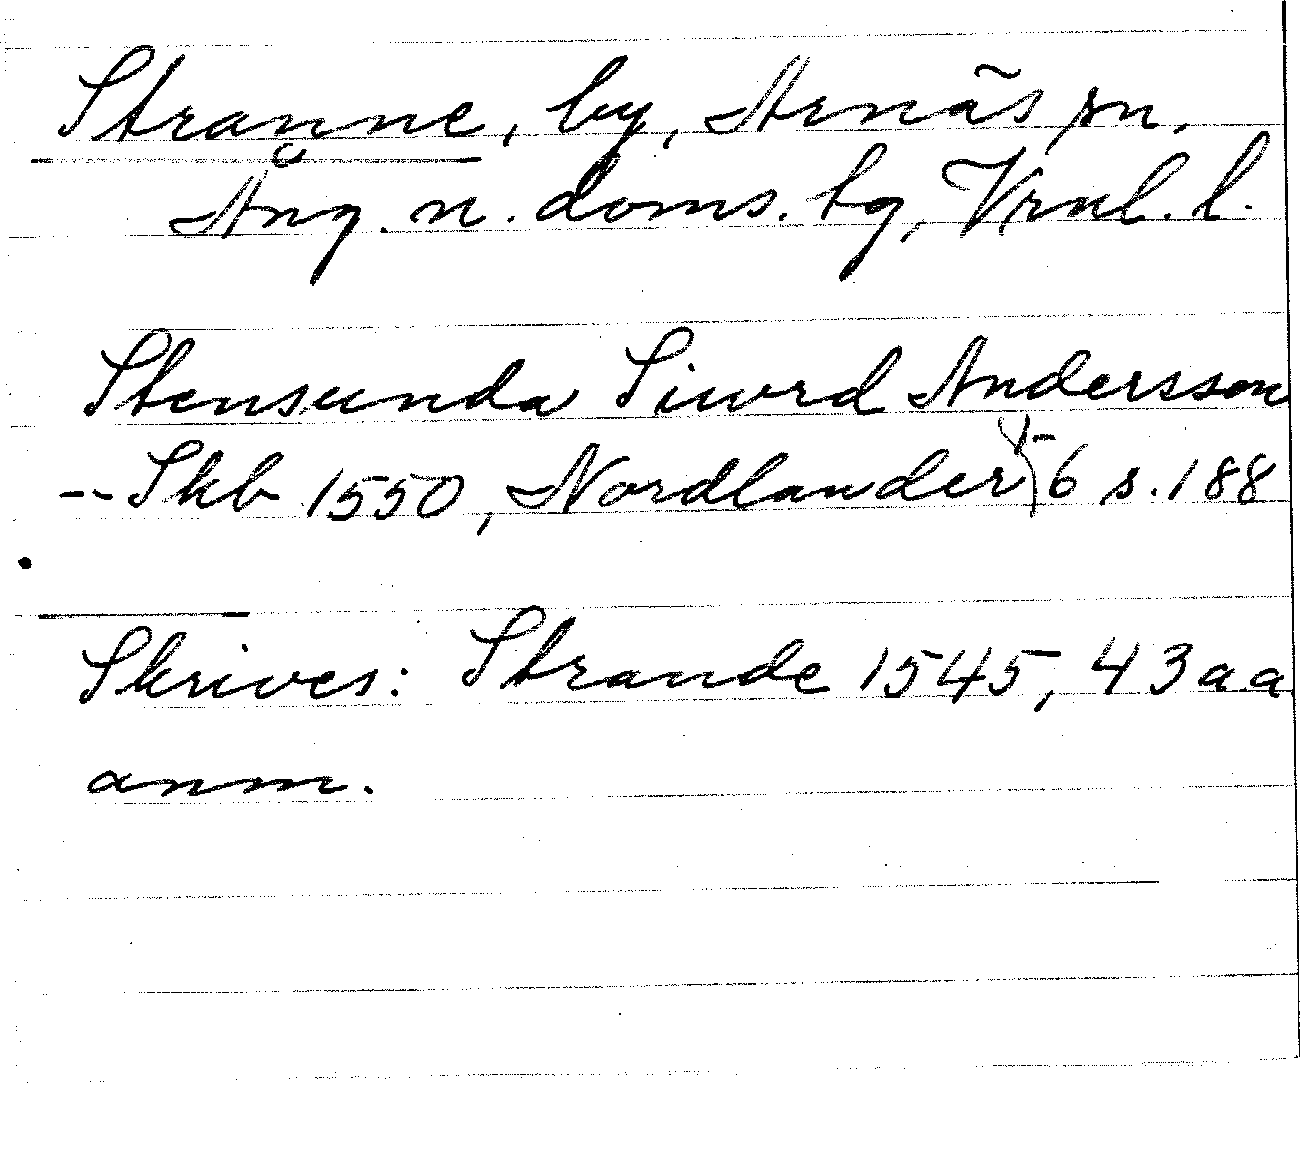 Stranne, by, Arnäs sn,
Ång. n. doms. tg, Vrnl. l.
Stensunda Siword Andersson
-- Skb 1550, Nordlander 6 s. 188
Skrives: Strande 1545, 43 aa
anm.